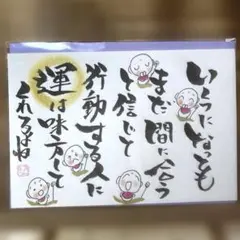 いくつになっても
まだ間に合う
と信じて
行動する人に
運は味方して
くれるはず